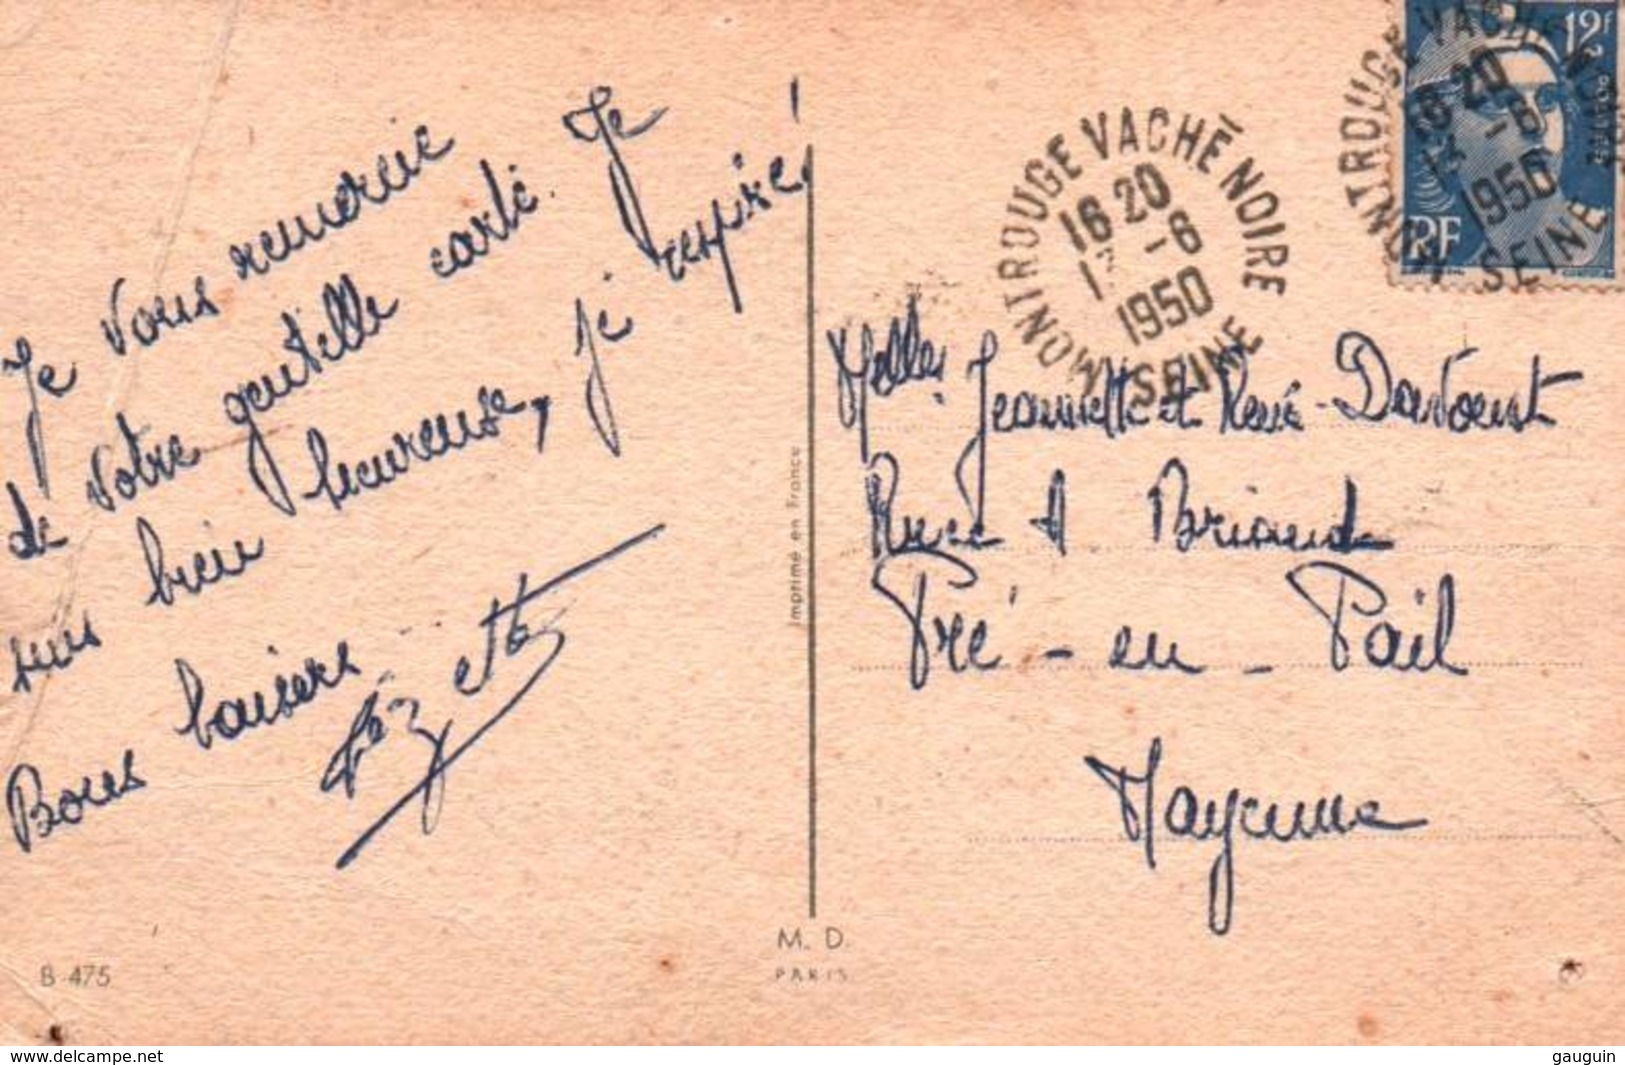 Je vous remercie
de votre gentille carte. Je
suis bien heureuse, je respire!
Bons baisers
B-475
Imprimé en France
M. D.
PARIS
MONTROUGE VACHE NOIRE
16 20
-6
1950
SEINE
12F
POSTES
RF
MONTROUGE VACHE NOIRE
16 20
13 -6
1950
SEINE
Melles Jeannette et René Davoust
Rue A Briand
Pré-en-Pail
Mayenne
www.delcampe.net
gauguin